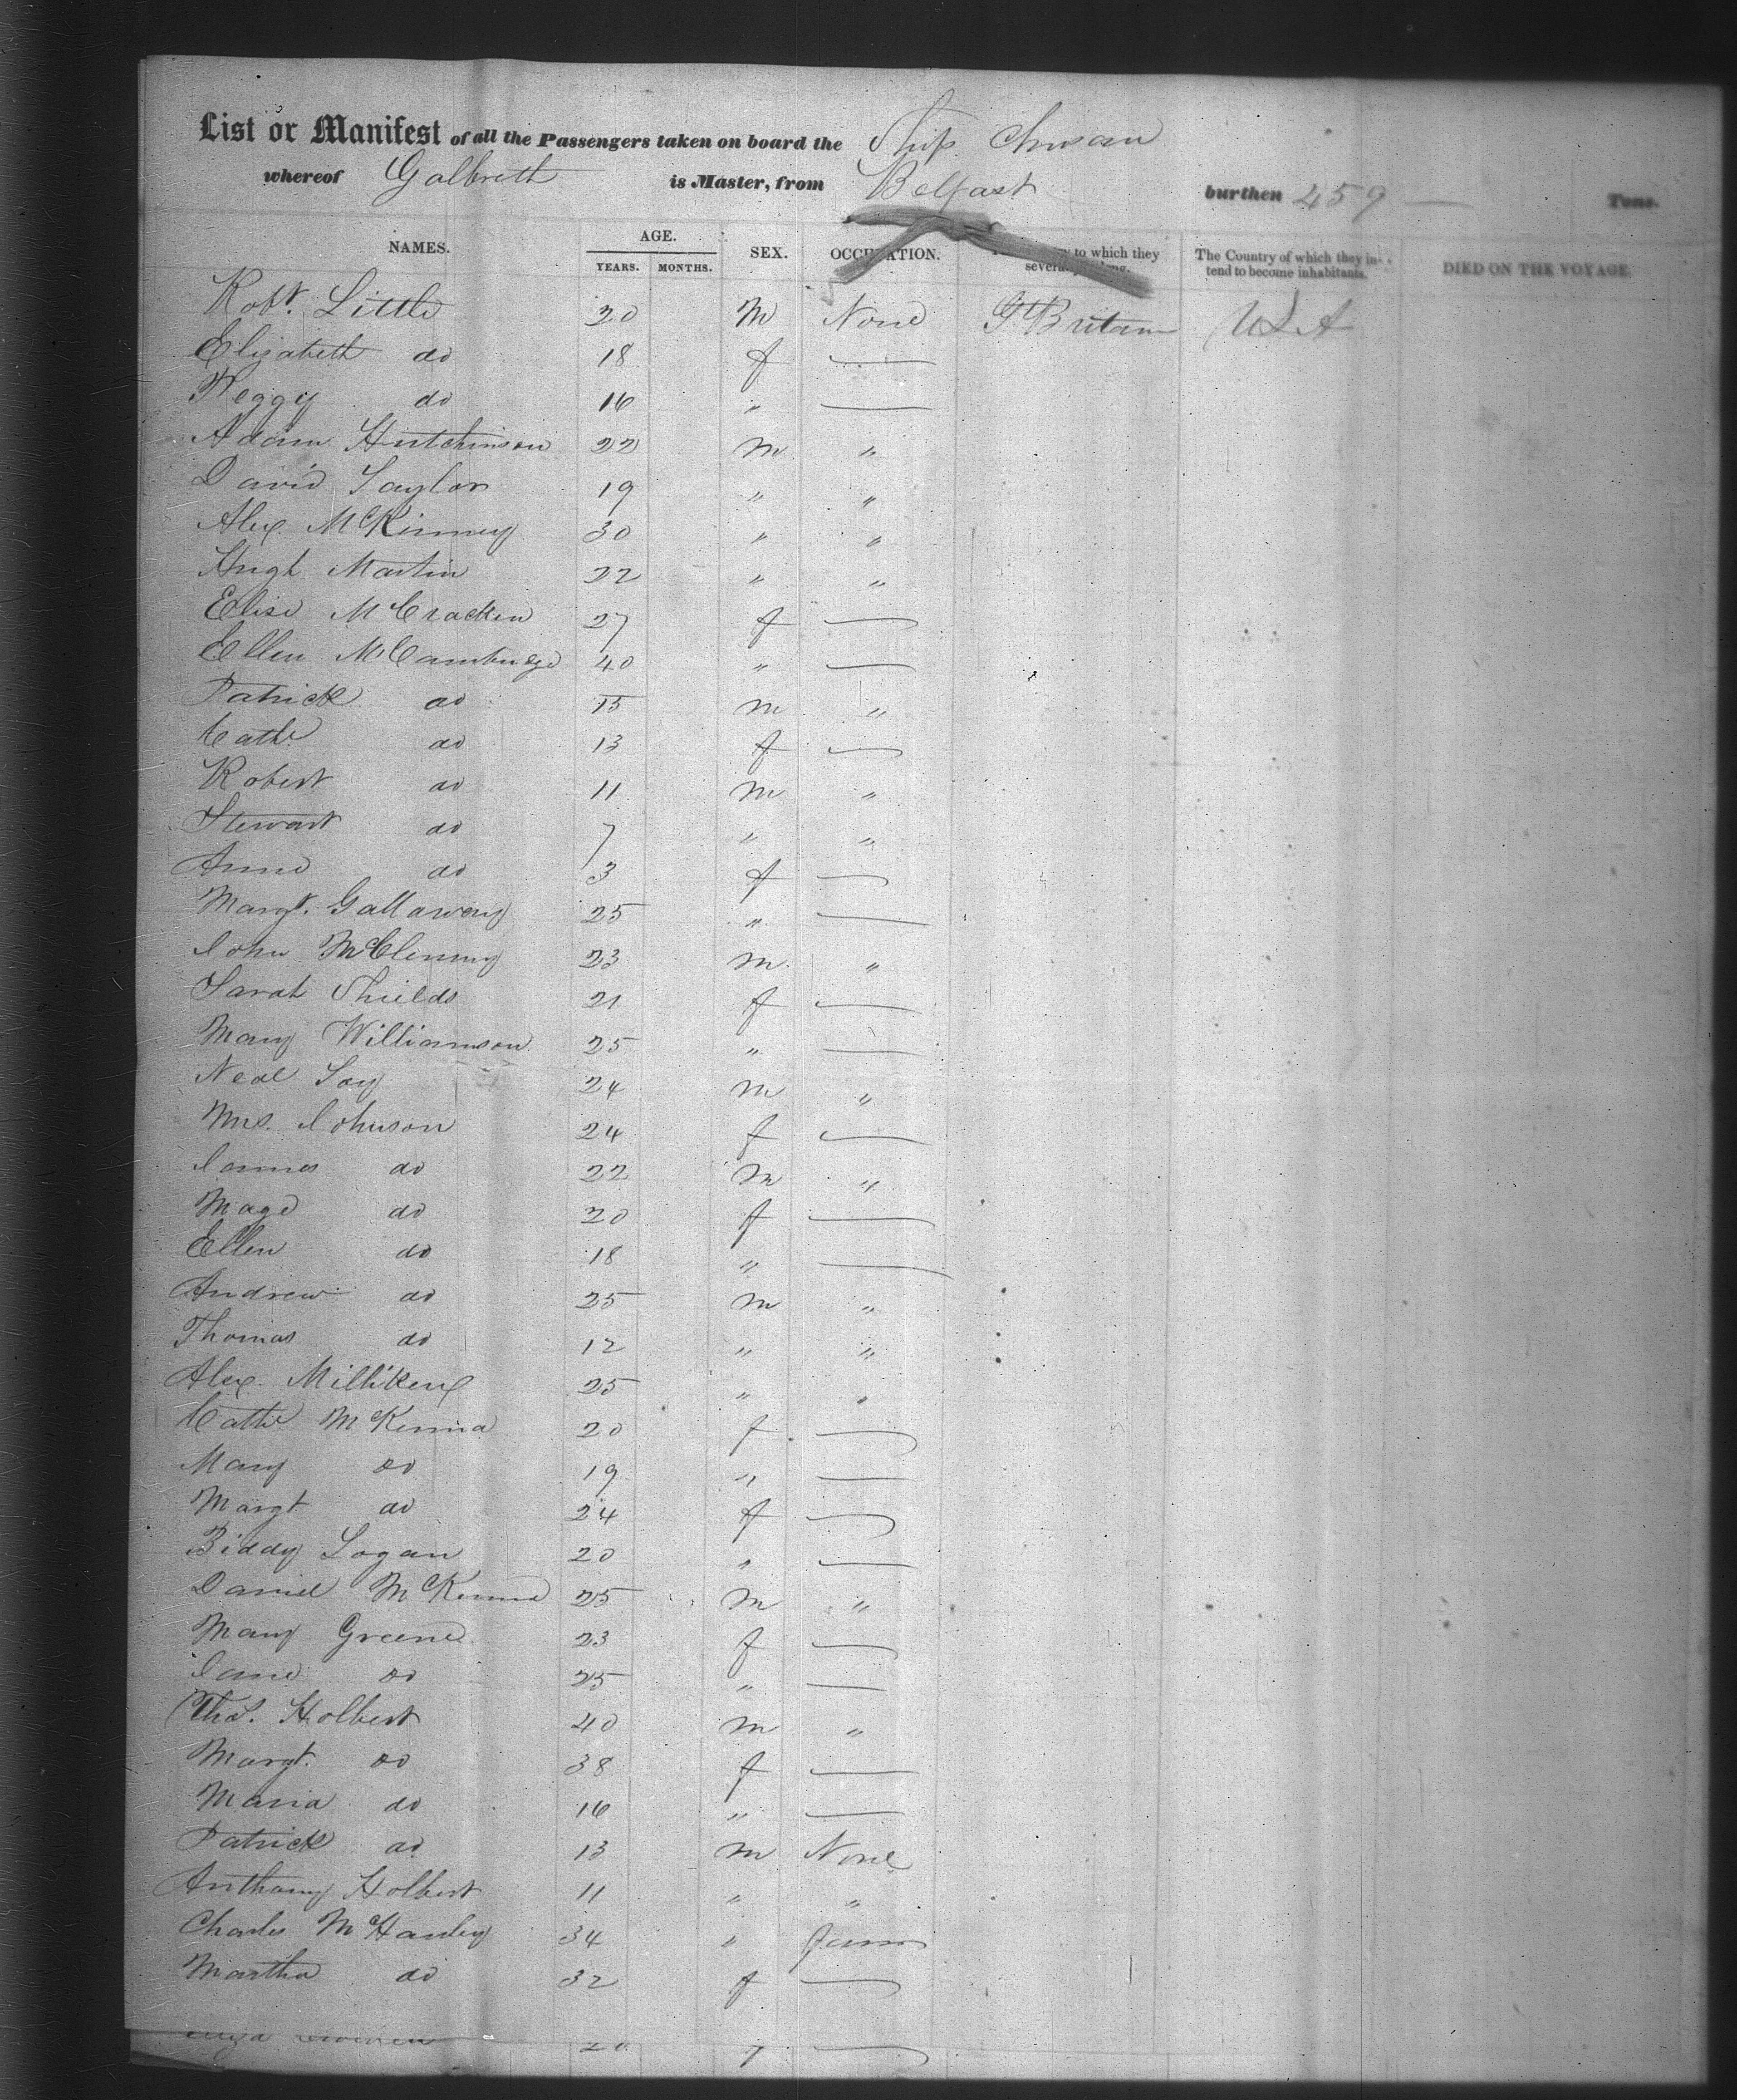 List or Manifest of all the Passengers taken on board the Ship Chusan
whereof Galbreth is Master, from Belfast burthen 459 — Tons.
NAMES. AGE. YEARS. MONTHS. SEX. OCCUPATION. to which they severally The Country of which they intend to become inhabitants. DIED ON THE VOYAGE.
Robt. Little 20 M None Gt Britain USA
Elizabeth do 18 f —
Peggy do 16 " —
Adam Hutchinson 22 m "
David Taylor 19 " "
Alex McKinney 30 " "
Hugh Martin 22 " "
Elise McCracken 27 f —
Ellen McCambridge 40 " —
Patrick do 15 m "
Cathe do 13 f —
Robert do 11 m "
Stewart do 7 " "
Anne do 3 f —
Margt. Gallaway 25 " —
John McCleniny 23 m "
Sarah Shields 21 f —
Mary Williamson 25 " —
Neal 24 m "
Mrs. Johnson 24 f —
James do 22 m "
Mage do 20 f —
Ellen do 18 " —
Andrew do 25 m "
Thomas do 12 " "
Alex. Milliken 25 " "
Cathe McKenna 20 f —
Mary do 19 " —
Margt do 24 f —
Biddy Logan 20 " —
Daniel McKenna 25 m "
Mary Greene 23 f —
Jane do 25 " —
Thos. Holbert 40 m "
Margt. do 38 f —
Maria do 16 " —
Patrick do 13 m None
Anthony Holbert 11 " "
Charles McHanley 34 " Farmr
Martha do 32 f —
20 f —